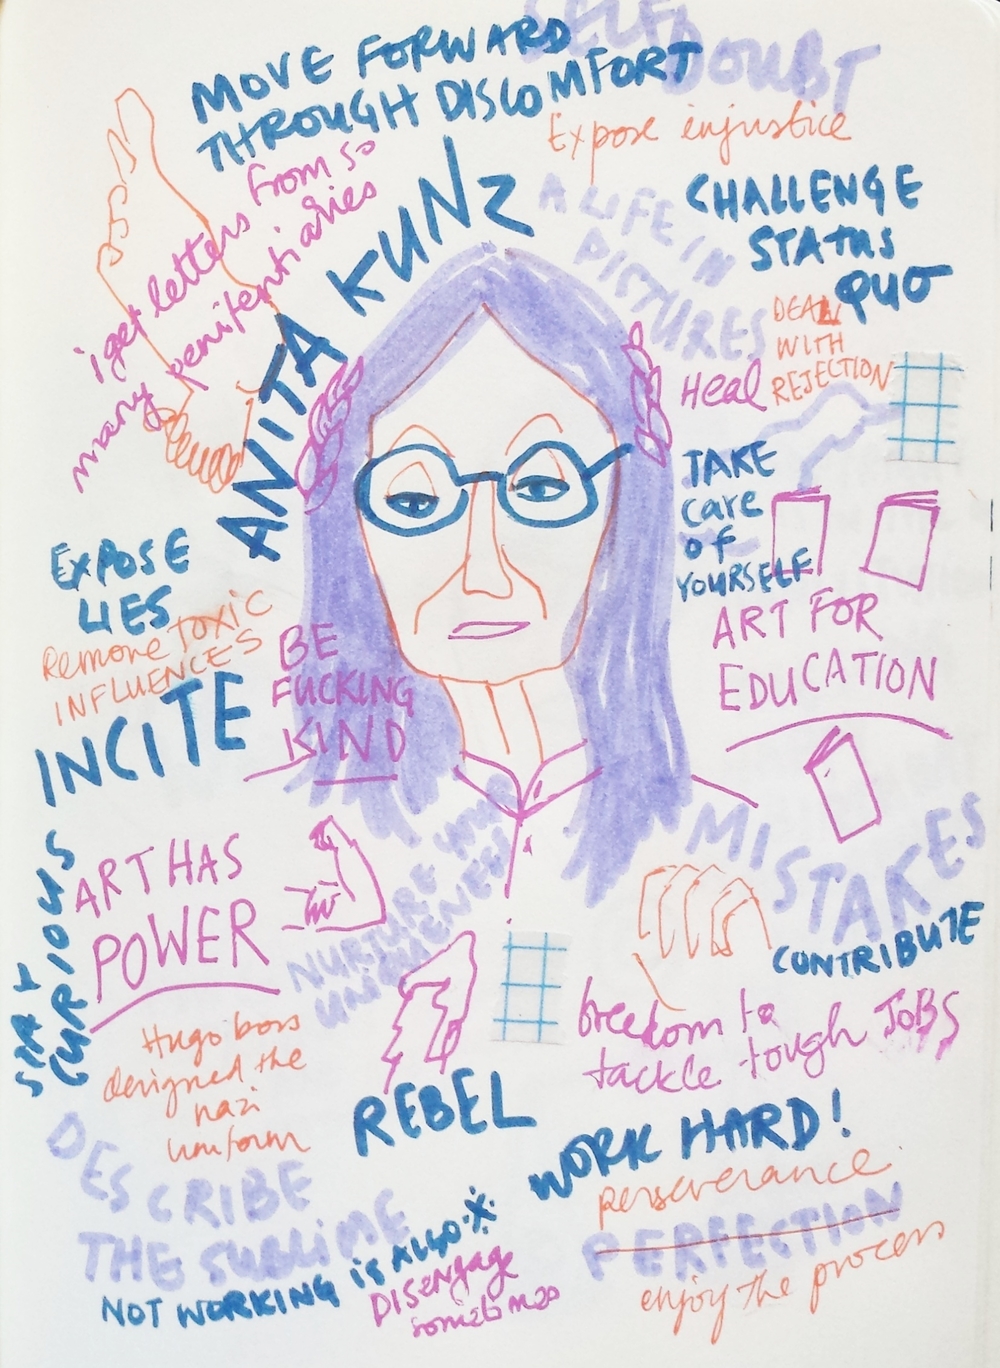 SELF
DOUBT
MOVE FORWARD
THROUGH DISCOMFORT
Expose injustice
i get letters from so
many penitentiaries
ANITA KUNZ
A LIFE IN
PICTURES
CHALLENGE
STATUS
QUO
DEAL
WITH
REJECTION
Heal
TAKE
care
of
YOURSELF
EXPOSE
LIES
Remove TOXIC
INFLUENCES
INCITE
BE
FUCKING
KIND
ART FOR
EDUCATION
MISTAKES
STAY
CURIOUS
ART HAS
POWER
NURTURE
UNIQUENESS
CONTRIBUTE
freedom to
tackle tough JOBS
Hugo boss
designed the
nazi
uniform
REBEL
WORK HARD!
perseverance
PERFECTION
enjoy the process
DESCRIBE
THE SUBLIME
NOT WORKING is ALSO
DISengage
sometimes